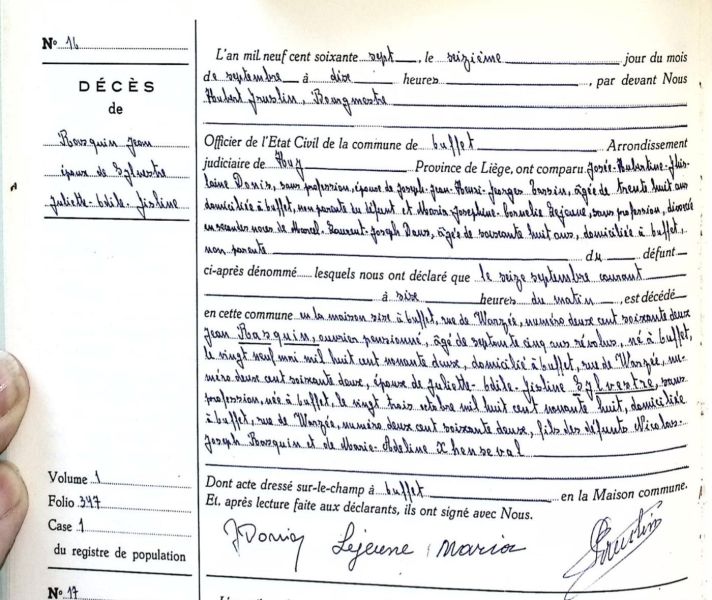 N° 16
DÉCÈS
de
Rasquin Jean
époux de Sylvestre
Juliette-Odile-Gisline
Volume 1
Folio 347
Case 1
du registre de population
N° 17
L'an mil neuf cent soixante sept, le seizième jour du mois
de septembre à dix heures, par devant Nous
Hubert Bourgmestre
Officier de l'Etat Civil de la commune de Ouffet Arrondissement
judiciaire de Huy Province de Liège, ont comparu Josée-Hubertine-Ghis-
laine Donis, sans profession, épouse de Joseph-Jean-Henri-Georges Tassin, âgée de trente huit ans
domiciliée à Ouffet, non parente du défunt et Maria-Joséphine-Cornélie Lejeune, sans profession, divorcée
en secondes noces de Marcel-Laurent-Joseph Daus, âgée de soixante huit ans, domiciliée à Ouffet,
non parente du défunt
ci-après dénommé lesquels nous ont déclaré que le seize septembre courant
à six heures du matin, est décédé
en cette commune en la maison sise à Ouffet, rue de Warzée, numéro deux cent soixante deux
Jean Rasquin, ouvrier pensionné, âgé de septante cinq ans révolus, né à Ouffet,
le vingt neuf mai mil huit cent nonante deux, domicilié à Ouffet, rue de Warzée, nu-
méro deux cent soixante deux, époux de Juliette-Odile-Gisline Sylvestre, sans
profession, née à Ouffet, le vingt trois octobre mil huit cent nonante huit, domiciliée
à Ouffet, rue de Warzée, numéro deux cent soixante deux, fils des défunts Nicolas-
Joseph Rasquin et de Marie-Adeline Xhenseval
Dont acte dressé sur-le-champ à Ouffet en la Maison commune.
Et, après lecture faite aux déclarants, ils ont signé avec Nous.
J Donis Lejeune Maria